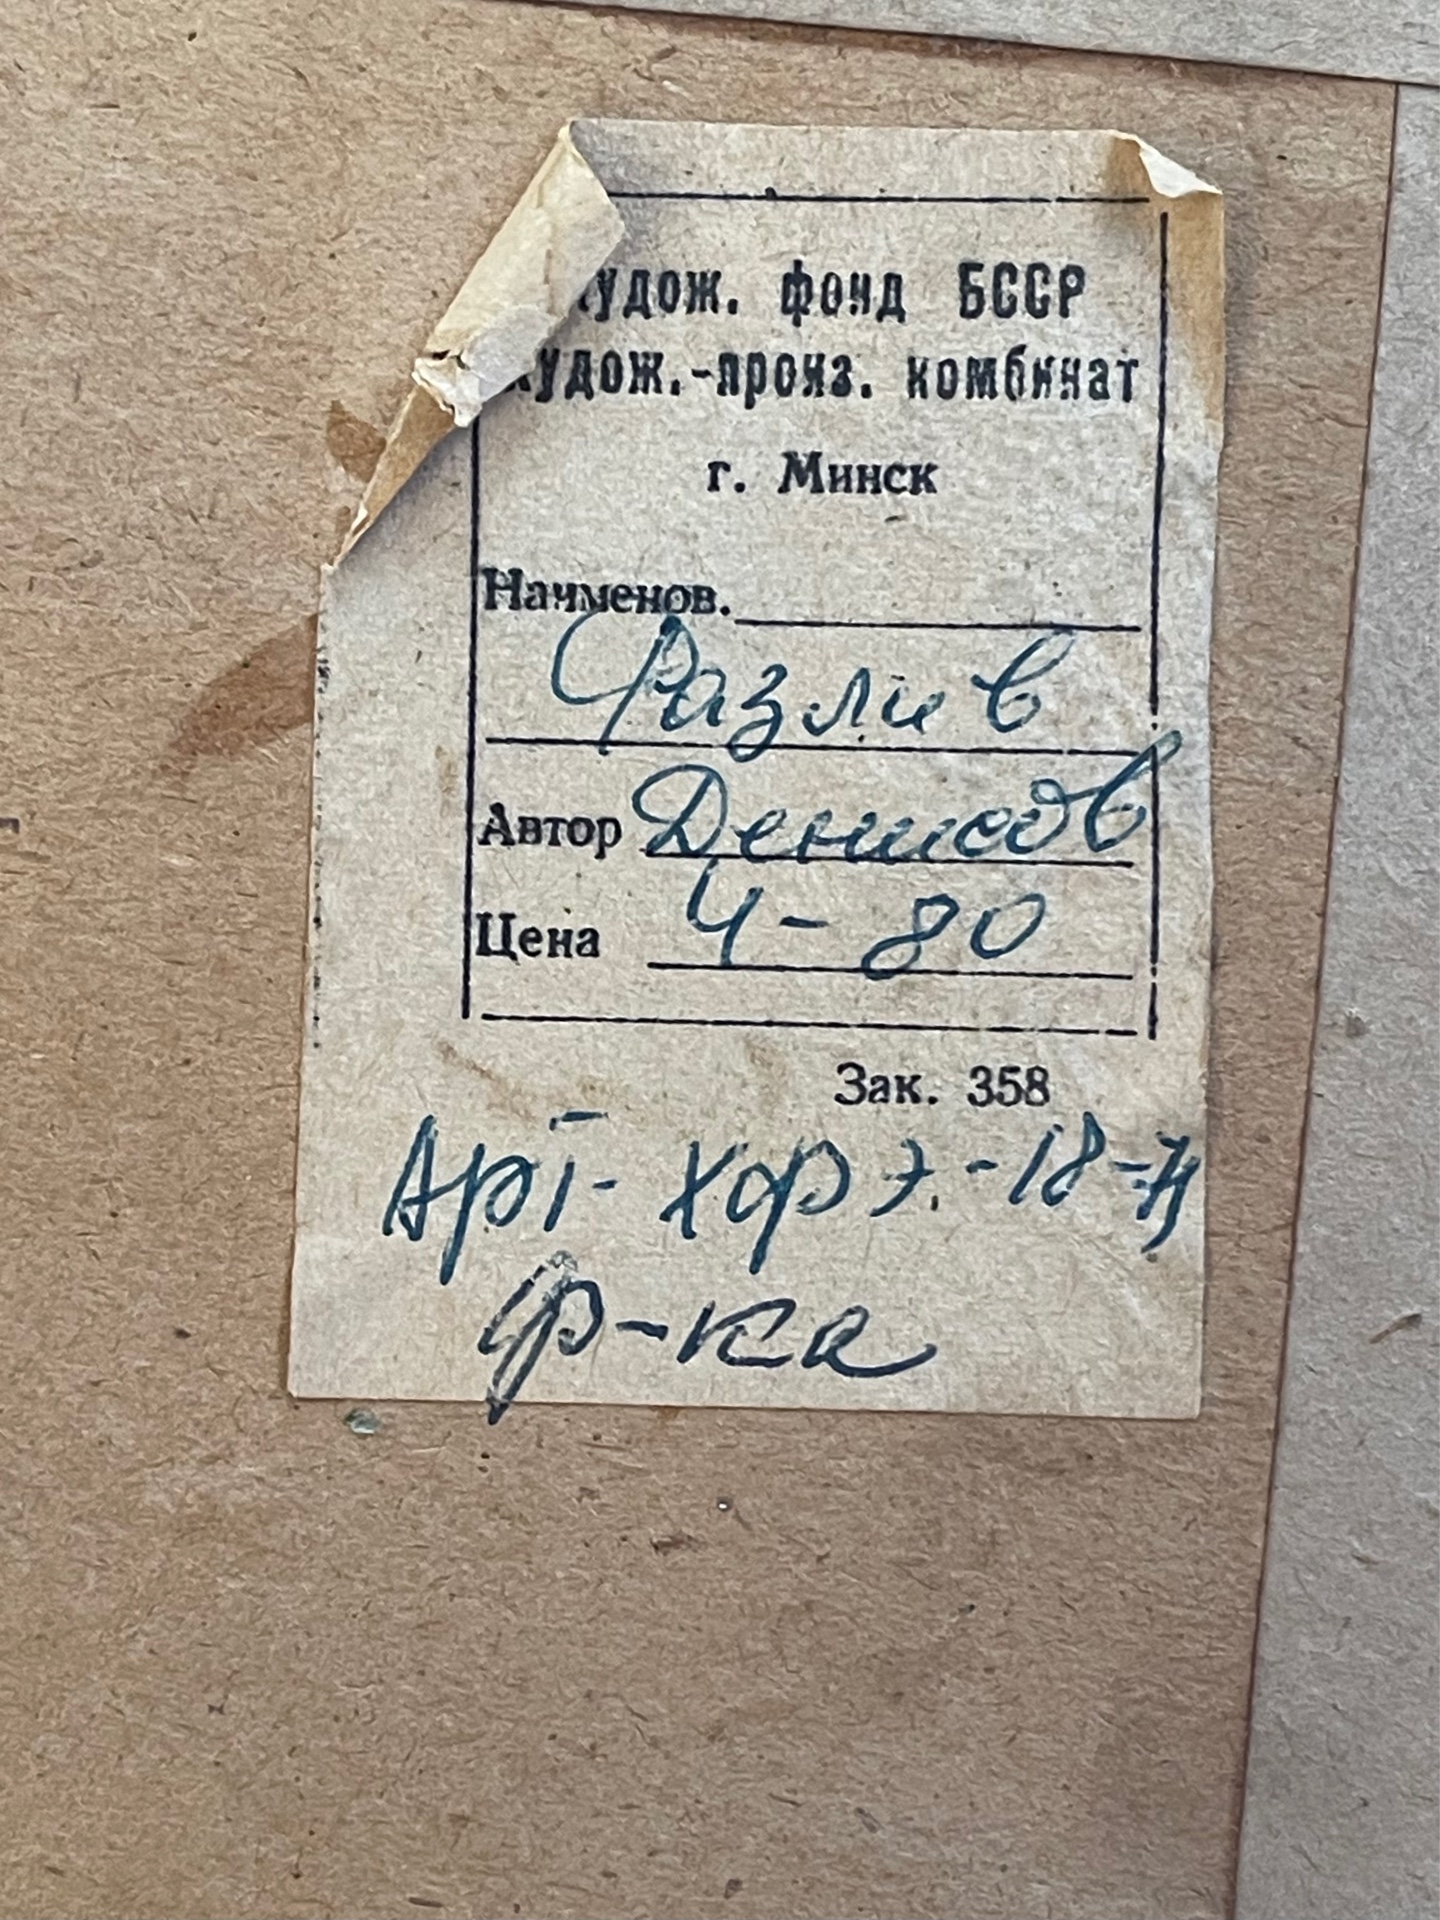 худож. фонд БССР
худож.-произ. комбинат
г. Минск
Наименов.
Разлив
Автор Денисов
Цена 4-80
Зак. 358
Арт- хфрэ.-18-
ф-ка